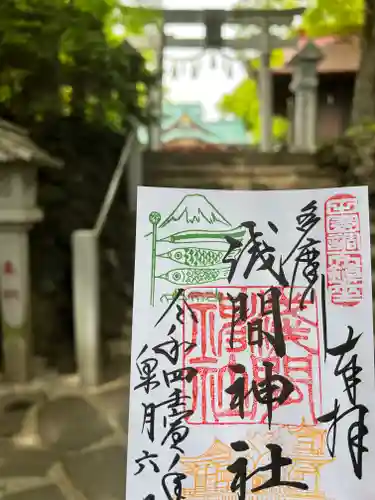 多摩川
浅間神社
奉拝
令和四壬寅年
皐月六日